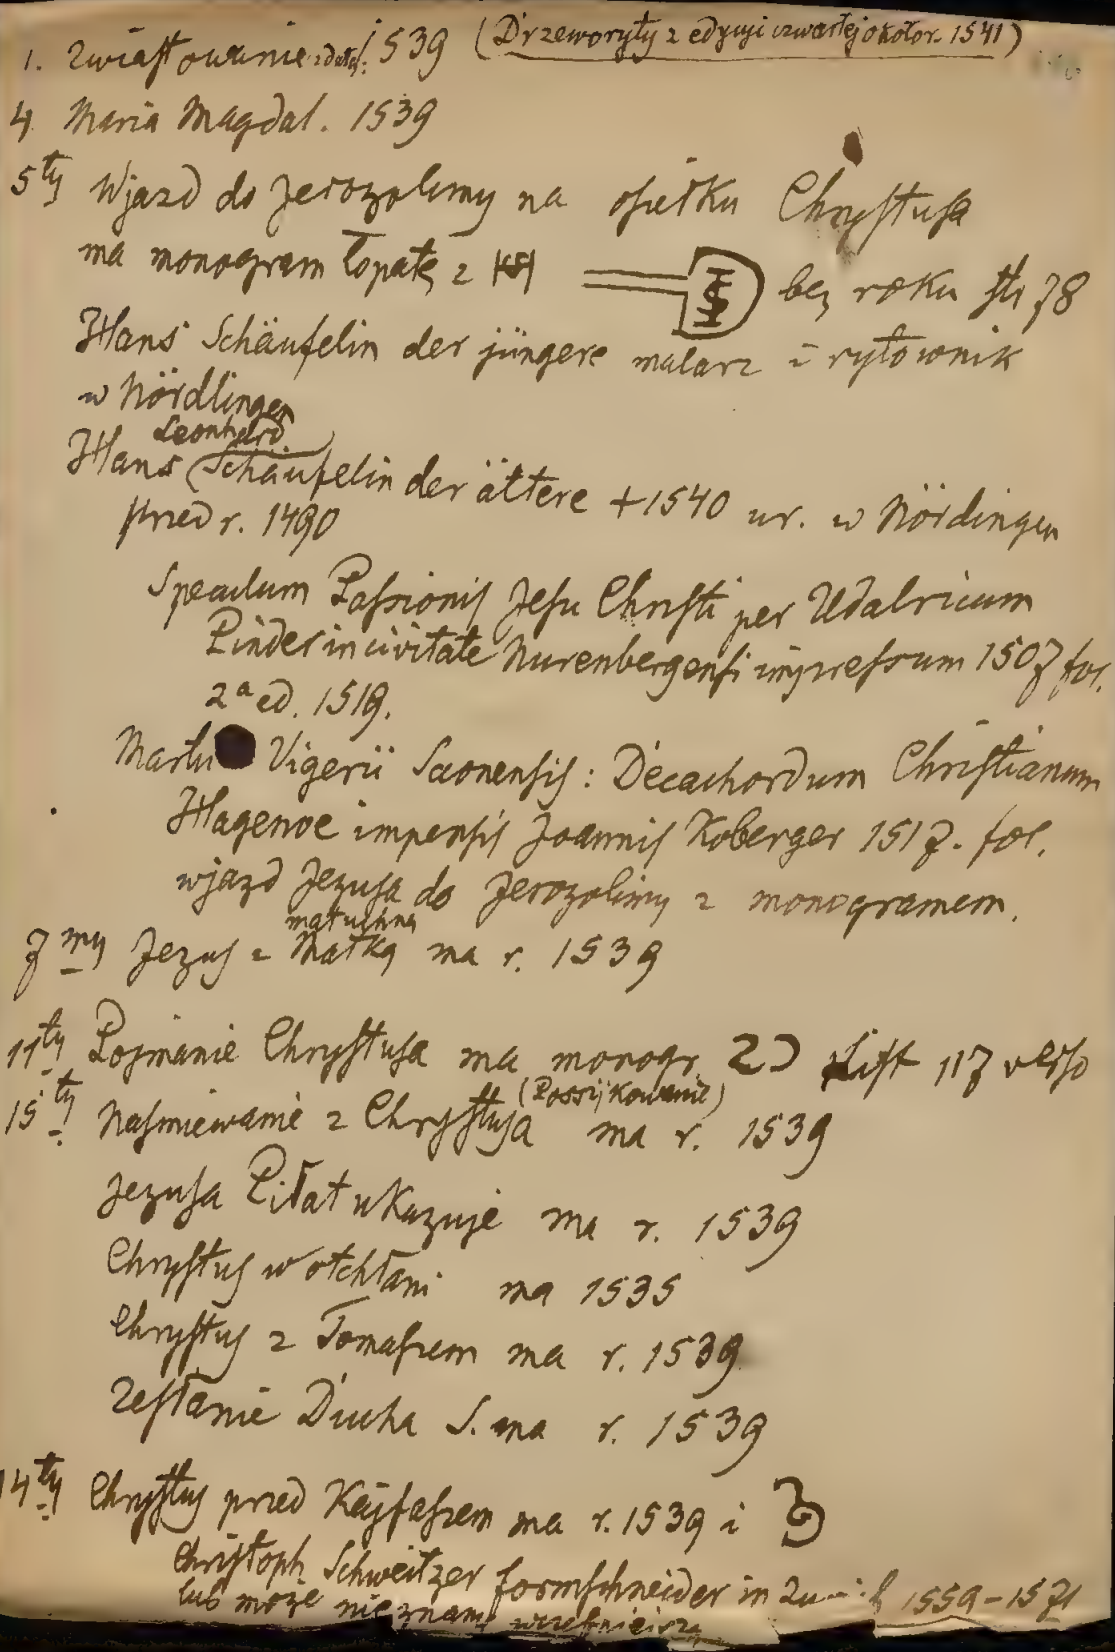 1. Zwiastowanie z datą: 1539 (Drzeworyty z edycyi czwartej około r. 1541)
4 Maria Magdal. 1539
5ty Wjazd do Jerozolimy na osiełku Chrystusa
ma monogram łopatę z HS bez roku str 78
Hans Schäufelin der jüngere malarz i rytownik
w Nördlingen
Leonhard
Hans Schäufelin der ältere +1540 ur. w Nördingen
przed r. 1490
Speculum Passionis Jesu Christi per Udalricum
Pinder in civitate Nurenbergensi impressum 1507 fol.
2a ed. 1519.
Vigerii Saonensis: Decachordum Christianum
Hagenoe impensis Joannis Koberger 1517. fol.
wjazd Jezusa do Jerozolimy z monogramem.
matuchną
7my Jezus z Matką ma r. 1539
11ty Pojmanie Chrystusa ma monogr. List 117 verso
15ty Naśmiewanie z Chrystusa (Possyjkowanie) ma r. 1539
Jezusa Piłat ukazuje ma r. 1539
Chrystus w otchłani ma 1535
Chrystus z Tomaszem ma r. 1539
Zesłanie Ducha S. ma r. 1539
14ty Chrystus przed Kajfaszem ma r. 1539 i
Christoph Schweitzer formschneider in 1559-1571
lub może nieznany